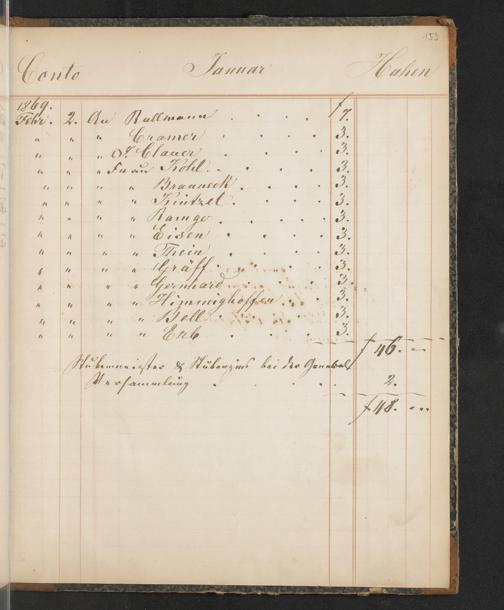 153
Conto Januar Haben
1869.
Febr 2. An Rullmann . . . . f 7.
" " " Cramer . . . . 3.
" " " Clauer . . . 3.
" " " Frau Kohl . . . . 3.
" " " " Brauneck . . . 3.
" " " " Kintzel . . . . 3.
" " " " Ramge . . . . 3.
" " " " Eisen . . . . 3.
" " " " Thein . . . . 3.
" " " " Gräff . . . . 3.
" " " " Gernhard . . . 3.
" " " " Himmighoffen . . 3.
" " " " Boll . . . . 3.
" " " " Erb . . . . 3.
f 46. "
Stubenmeister & Stubenzins bei der General
Versammlung . . . . . 2.
f 48. "